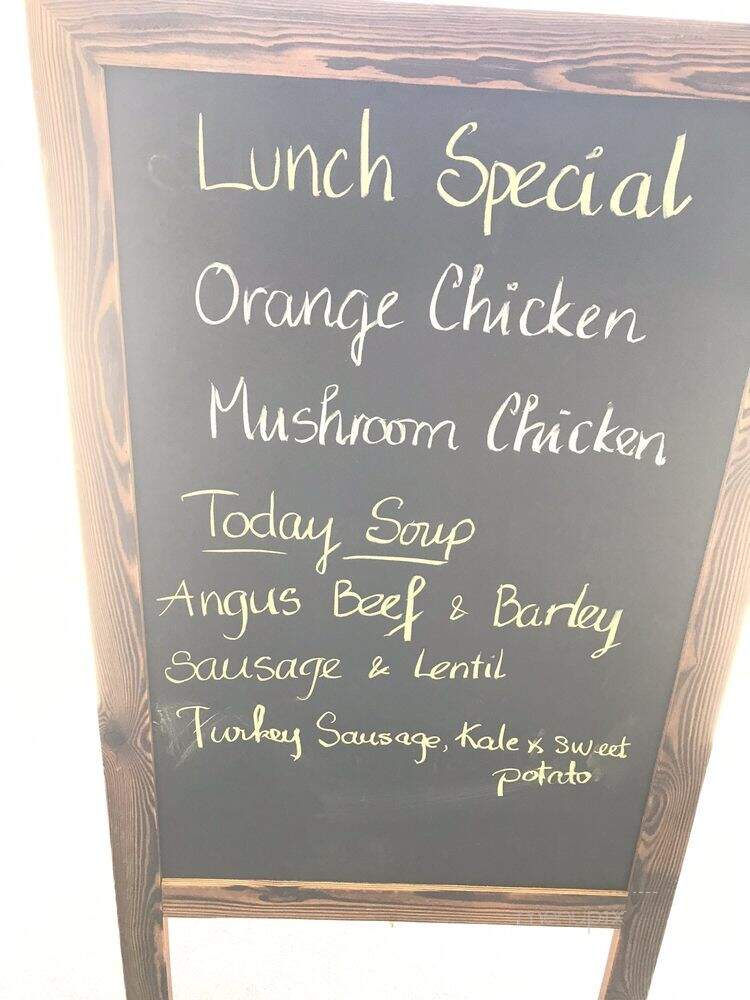 Lunch Special
Orange Chicken
Mushroom Chicken
Today Soup
Angus Beef & Barley
Sausage & Lentil
Turkey Sausage, Kale & sweet
potato
menupix